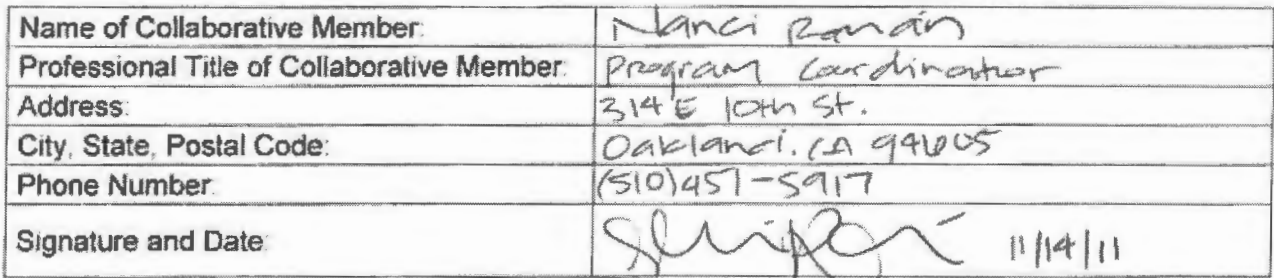 Name of Collaborative Member: Nanci Román
Professional Title of Collaborative Member: Program Coordinator
Address: 314 E 10th St.
City, State, Postal Code: Oakland, CA 94605
Phone Number (510)451-5917
Signature and Date: 11/14/11